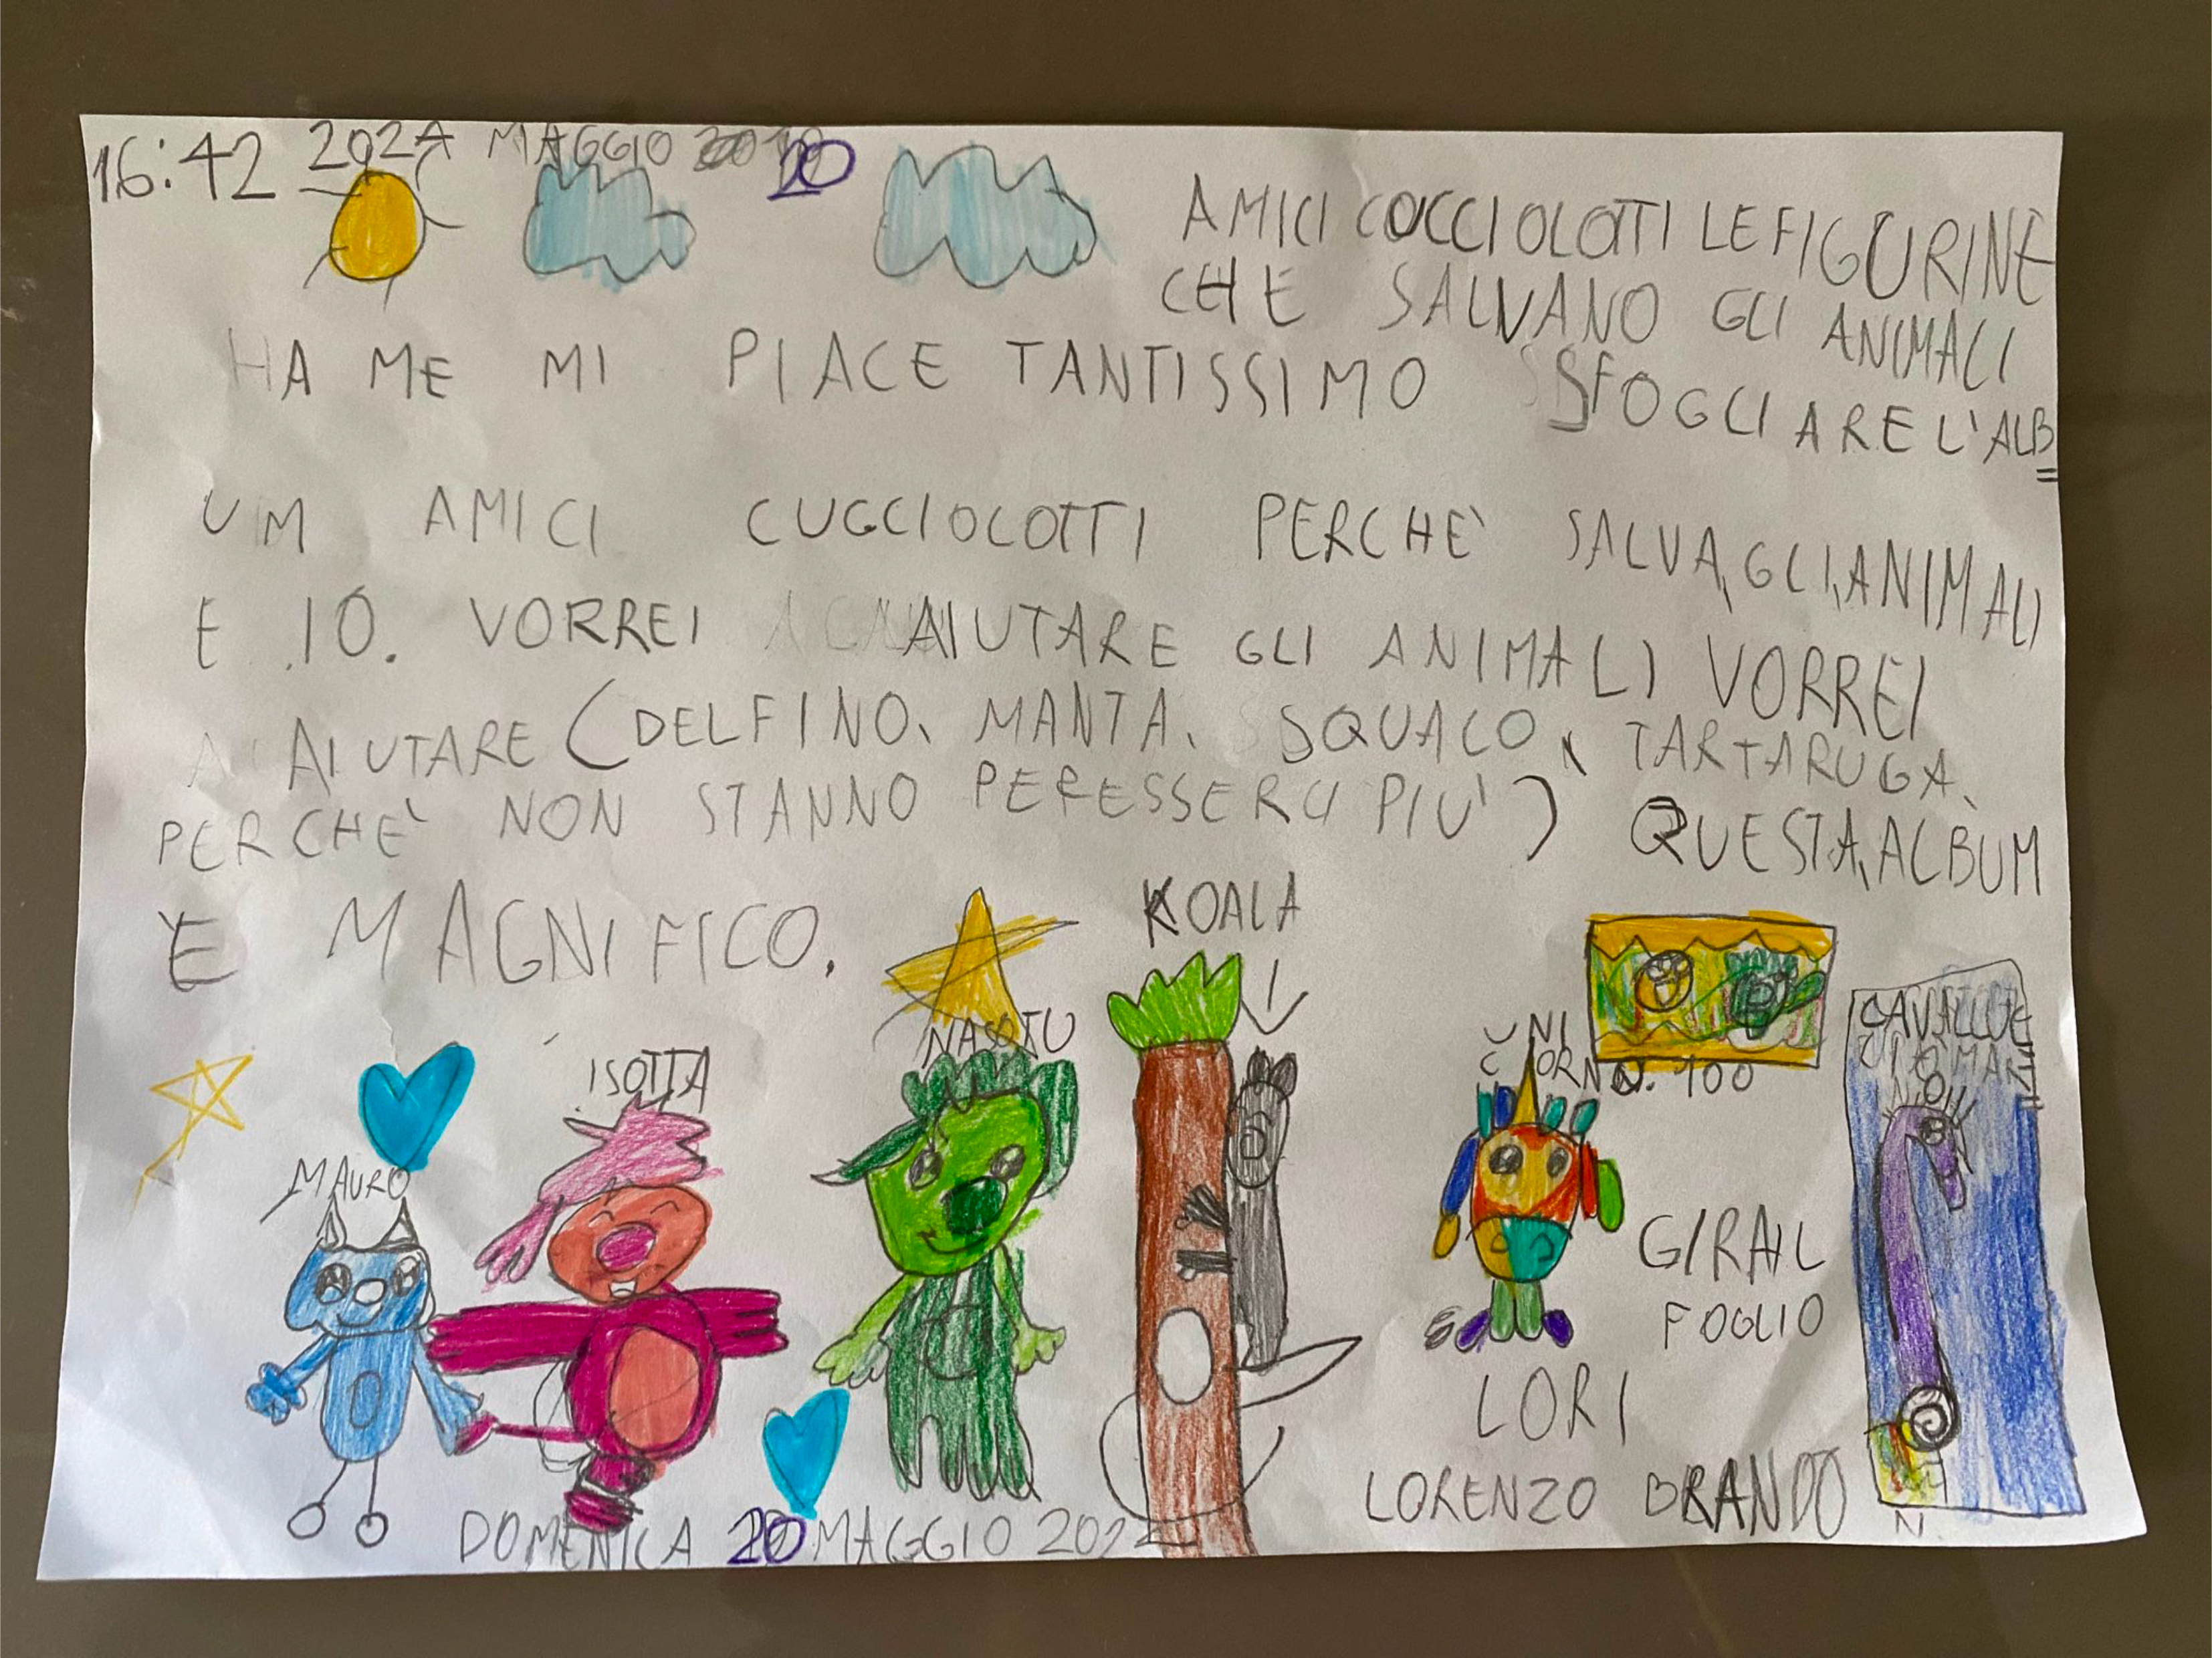 16:42 2024 MAGGIO 20
AMICI CUCCIOLOTTI LE FIGURINE
CHE SALVANO GLI ANIMALI
HA ME MI PIACE TANTISSIMO SFOGLIARE L'ALB=
UM AMICI CUGCIOLOTTI PERCHE` SALVA GLI ANIMALI
E IO. VORREI AIUTARE GLI ANIMALI VORREI
AIUTARE (DELFINO, MANTA, SQUALO, TARTARUGA,
PERCHE` NON STANNO PER ESSERCI PIU`) QUESTA ALBUM
È MAGNIFICO.
KOALA
NASOTU
ISOTTA
MAURO
UNI
CORNO
N. 100
GIRA IL
FOGLIO
LORI
LORENZO BRANDO
DOMENICA 20 MAGGIO